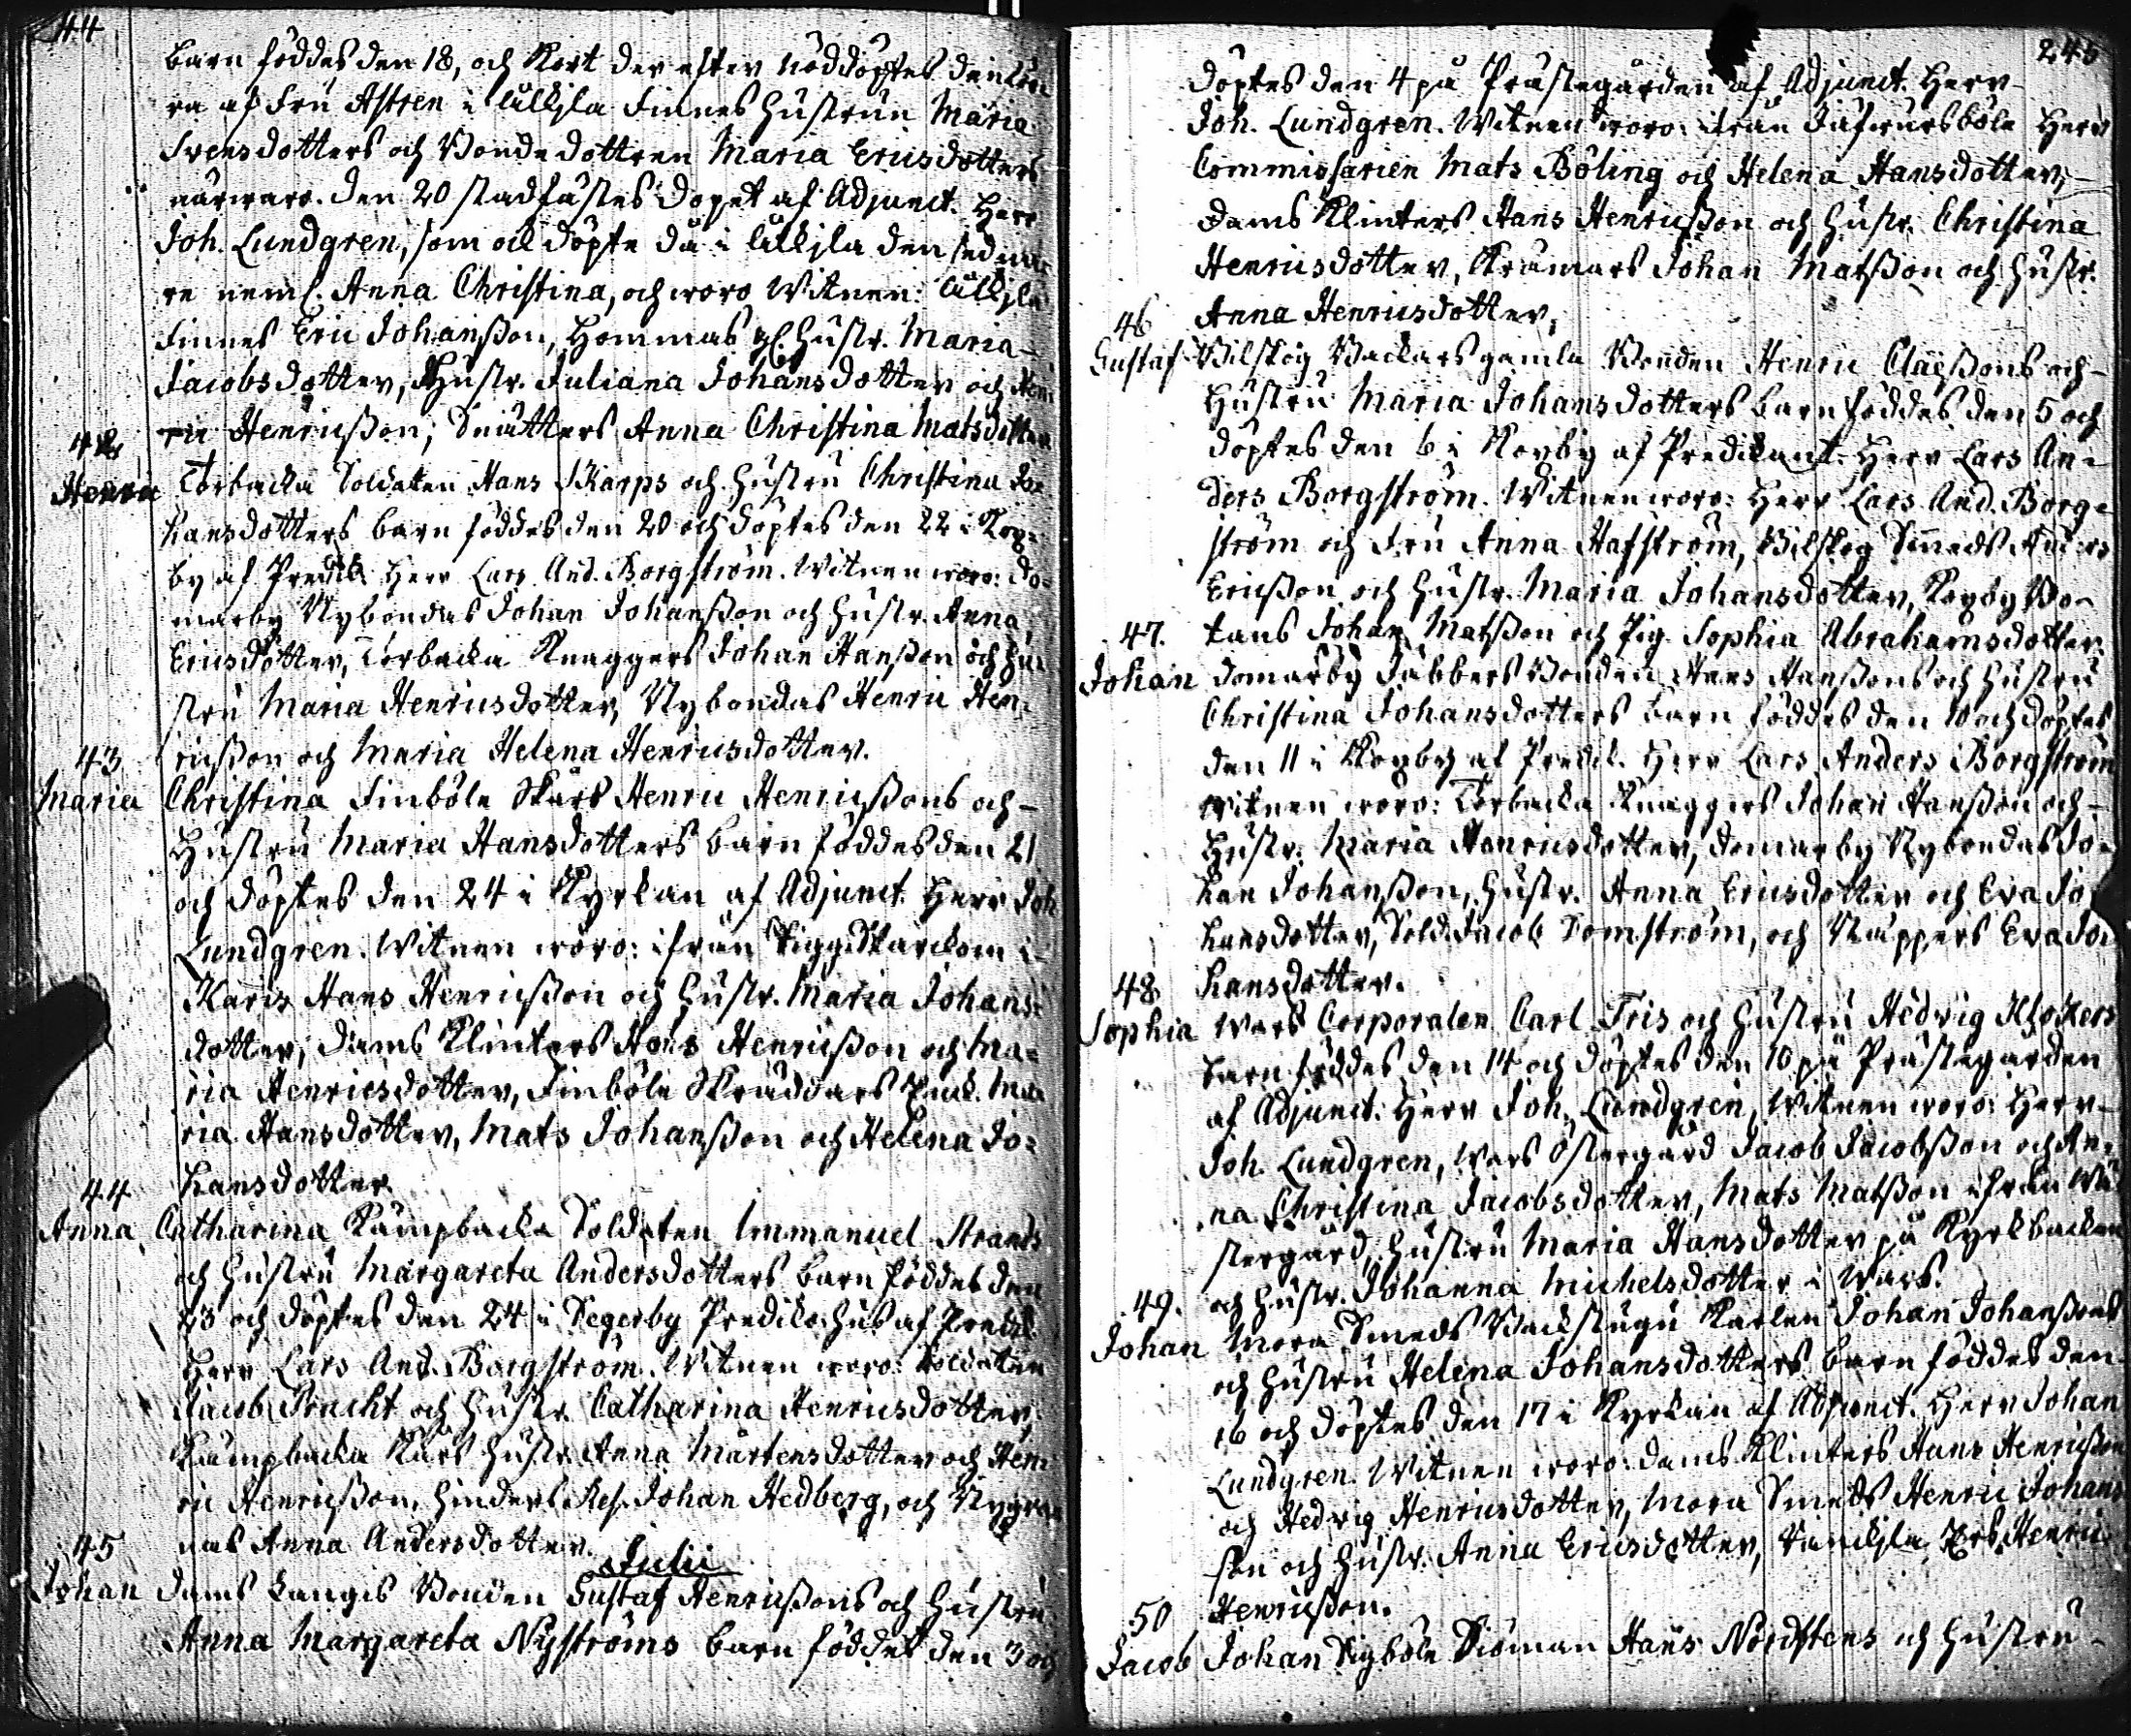 44
barn föddes den 18, och kort der efter nöddöptes den
ra af Fru Astren i Ulkila Finnes hustrun Maria
Svensdotters och Bonde dottren Maria Ericsdotters
närwaro. den 20 stadfästes dopet af Adjunct. Herr
Joh. Lundgren, som ock döpte då i Ulkila den sedna-
re neml. Anna Christina, och woro Witnen: Ulkila
Finnes Eric Johansson, Hommas gl. hustr. Maria
Jacobsdotter, Hustr. Juliana Johansdotter och Hen
ric Henricsson, Anna Christina Matsdotter
42
Henric Torbacka Soldaten Hans Skarps och hustru Christina Jo
hansdotters barn föddes den 20 och döptes den 22 i Kop-
by af Predik. Herr Lars And. Borgström. Witnen woro: Do-
marby Nybondas Johan Johansson och hustr. Anna
Ericsdotter, Torbacka Knaggers Johan Hansson och hu-
stru Maria Henricsdotter, Nybondas Henric Hen-
ricsson och Maria Helena Henricsdotter.
43
Maria Christina Finböle Skärs Henric Henricssons och
Hustru Maria Hansdotters barn föddes den 21
och döptes den 24 i Kyrkan af Adjunct. Herr Joh
Lundgren. Witnen woro: ifrån i
Karis Hans Henricsson och hustr. Maria Johans-
dotter, Dams Klinkers Hans Henricsson och Ma-
ria Henricsdotter, Finböle Skräddars Enk. Ma
ria Hansdotter, Mats Johansson och Helena Jo-
hansdotter.
44
Anna Catharina Kämpbacka Soldaten Immanuel Strands
och hustru Margareta Andersdotters barn föddes den
23 och döptes den 24 i Segerby Prediko hus af Predik
Herr Lars And. Borgström. Witnen woro: Soldaten
Jacob Pracht och hustr. Catharina Henricsdotter,
Kämpbacka Kärs hustr. Anna Mårtensdotter och Hen
ric Henricsson, Hinders Res. Johan Hedberg, och
nas Anna Andersdotter.
Julii
45
Johan Dams Langis Bonden Gustaf Henricssons och Hustru
Anna Margareta Nyströms barn föddes den 3 och
245
döptes den 4 på Prästegården af Adjunct. Herr
Joh. Lundgren. Witnen woro: ifrån Herr
Commissarien Mats Böling och Helena Hansdotter,
Dams Klinkers Hans Henricsson och hustr. Christina
Henricsdotter, Krämars Johan Matsson och hustr.
Anna Henricsdotter,
46
Gustaf Wilskog Backars gamla Bonden Henric Claessons och
Hustru Maria Johansdotters barn föddes den 5 och
döptes den 6 i Kopby af Predikant. Herr Lars An-
ders Borgström. Witnen woro: Herr Lars And. Borg-
ström och Fru Anna Hafström, Wilskog Smeds Anders
Ericsson och hustr. Maria Johansdotter, Kopby Bo-
47. tans Johan Matsson och Pig. Sophia Abrahamsdotter.
Johan Domarby Jäbbers Bonden Hans Hanssons och hustru
Christina Johansdotters barn föddes den 10 och döptes
den 11 i Kopby af Predik. Herr Lars Anders Borgström
Witnen woro: Torbacka Knaggers Johan Hansson och
Hustr. Maria Henricsdotter, Domarby Nybondas Jo-
han Johansson, hustr. Anna Ericsdotter och Eva Jo
hansdotter, Sold. Jacob Domström, och Eva Jo-
48 hansdotter.
Sophia Wars Corporalen Carl Fris och hustru Hedvig Klockers
barn föddes den 14 och döptes den 16 på Prästegården
af Adjunct: Herr Joh. Lundgren, Witnen woro: Herr
Joh. Lundgren, Wars Östergård Jacob Jacobsson och An-
na Christina Jacobsdotter, Mats Matsson ifrån Wä
stergård, hustru Maria Hansdotter på Kyrkbacken
och hustr. Johanna Michelsdotter i Wars.
49.
Johan Mora Smeds Backstugu Karlen Johan Johanssons
och hustru Helena Johansdotters barn föddes den
16 och döptes den 17 i Kyrkan af Adjunct. Herr Johan
Lundgren. Witnen woro: Dams Klinkers Hans Henricsson
och Hedvig Henricsdotter, Mora Smeds Henric Johans
son och hustr. Anna Ericsdotter, Ers Henric
50 Henricsson.
Jacob Johan Sigböle Sioman Hans Nordstens och hustru